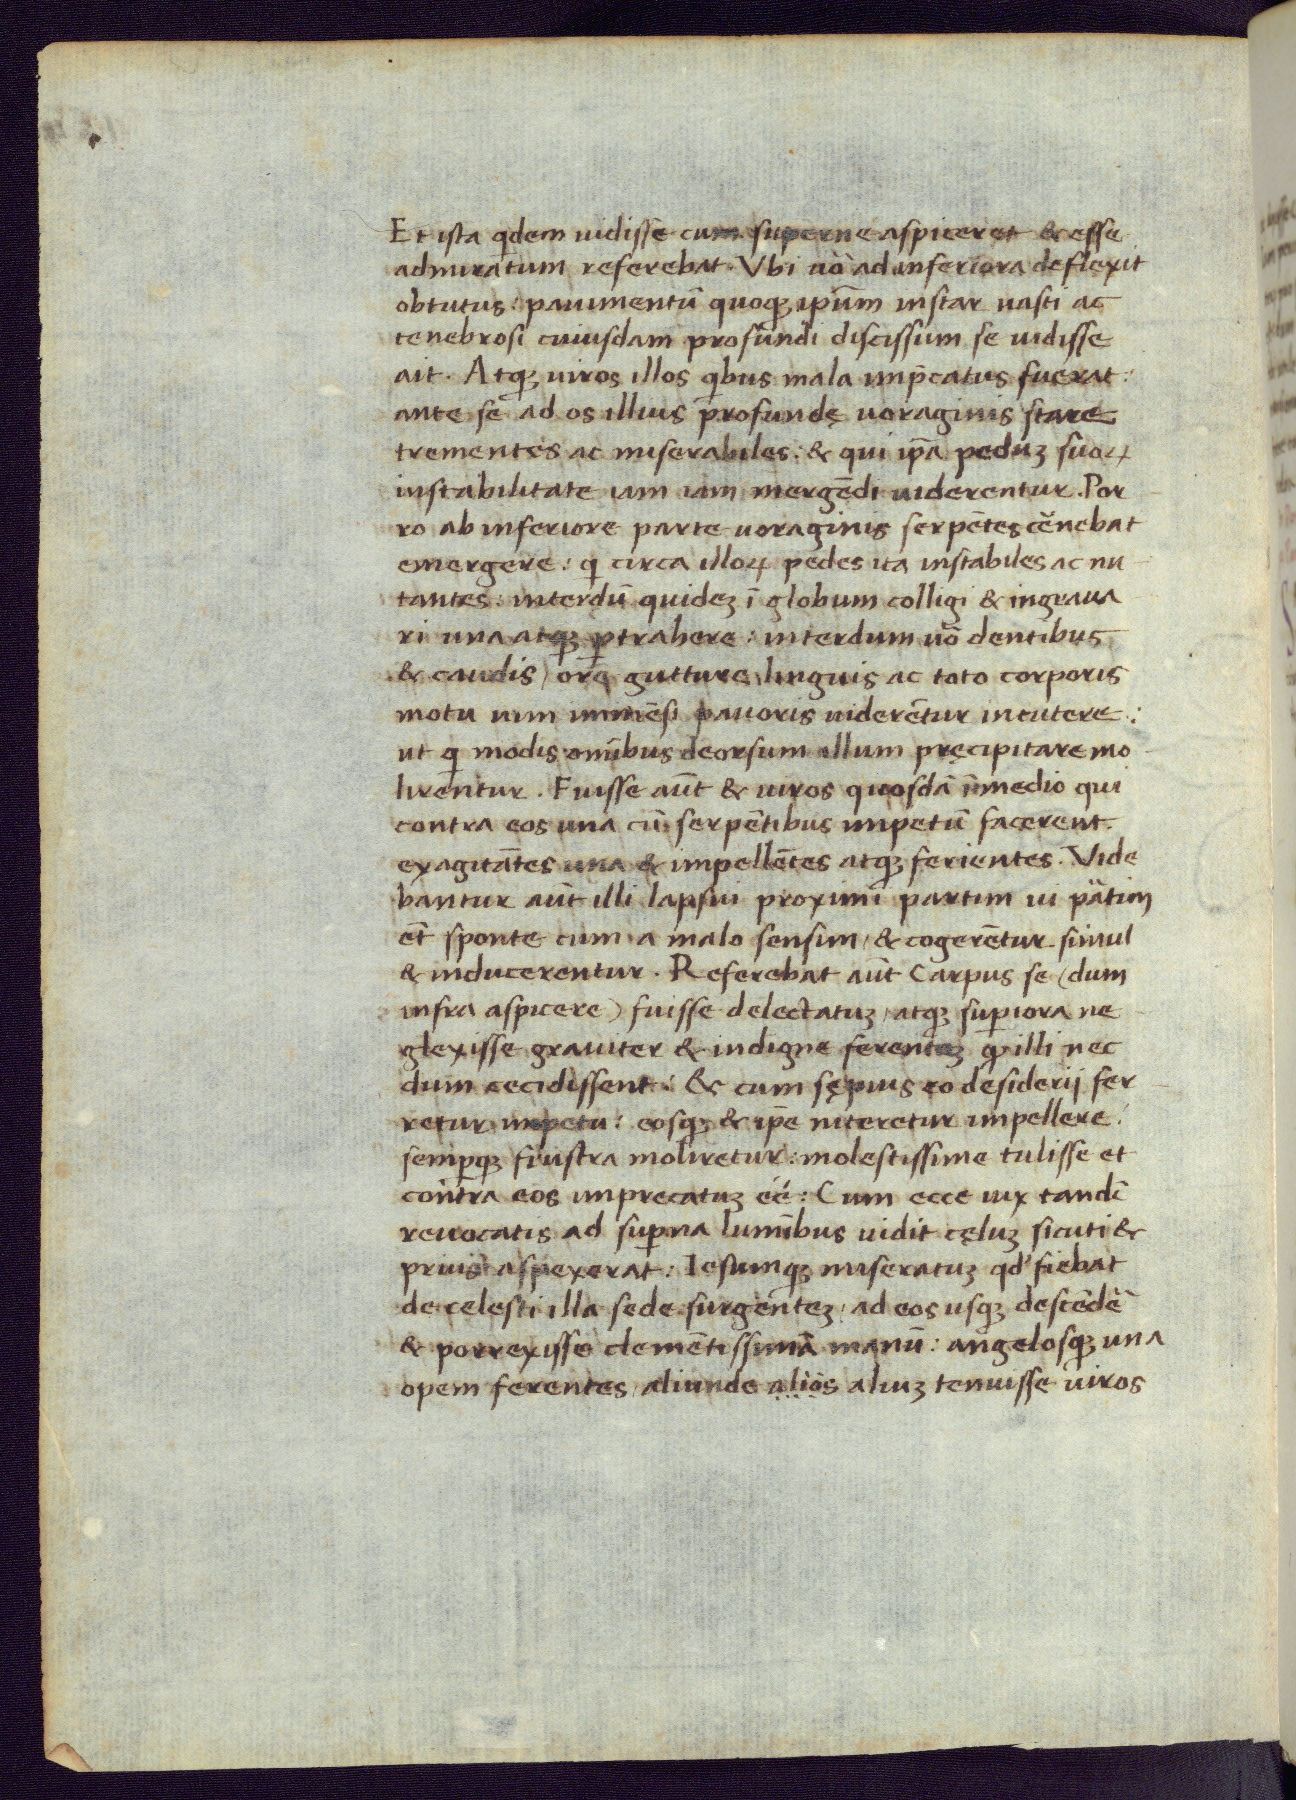 Et ista qdem uidisse cum superne aspiceret & esse
admiratum referebat. Vbi uō ad inferiora deflexit
obtutus: pauimentū quoqꝫ ipūm instar uasti ac
tenebrosi cuiusdam profundi discissum se uidisse
ait. Atqꝫ uiros illos qbus mala imp̄catus fuerat:
ante se ad os illius profundę uoraginis stare
trementes ac miserabiles: & qui ip̄a peduꝫ suoꝝ
instabilitate iam iam mergēdi uiderentur. Por
ro ab inferiore parte uoraginis serpētes cēnebat
emergere: q̄ circa illoꝝ pedes ita instabiles ac nu
tantes: interdū quideꝫ ī globum colligi & ingraua
ri una atqꝫ ꝑtrahere: interdum uō dentibus
& caudis, ore, gutture, linguis ac toto corporis
motu uim immēsi pauoris uiderētur incutere:
ut q̄ modis omībus deorsum illum pręcipitare mo
lirentur. Fuisse aūt & uiros quosdā ī medio qui
contra eos una cū serpētibus impetū facerent.
exagitātes una & impellētes atqꝫ ferientes. Vide
bantur aūt illi lapsui proximi partim ui p̄atim
ēt sponte cum a malo sensim, & cogerētur simul
& inducerentur. Referebat aūt Carpus se (dum
infra aspicere) fuisse delectatuꝫ, atqꝫ suꝑiora ne
glexisse grauiter & indigne ferenteꝫ qꝫ illi nec
dum cecidissent. & cum sępius eo desiderij fer
retur impetu: eosqꝫ & ip̄e niteretur impellere:
semꝑqꝫ frustra moliretur: molestissime tulisse et
contra eos imprecatuꝫ eē: Cum ecce uix tandē
reuocatis ad suꝑna lumībus uidit cęluꝫ sicuti &
prius aspexerat: Iesumqꝫ miseratuꝫ qd' fiebat
de celesti illa sede surgenteꝫ, ad eos usqꝫ descēdē
& porrexisse clemētissimā manū: angelosqꝫ una
opem ferentes, aliunde alios aliuꝫ tenuisse uiros